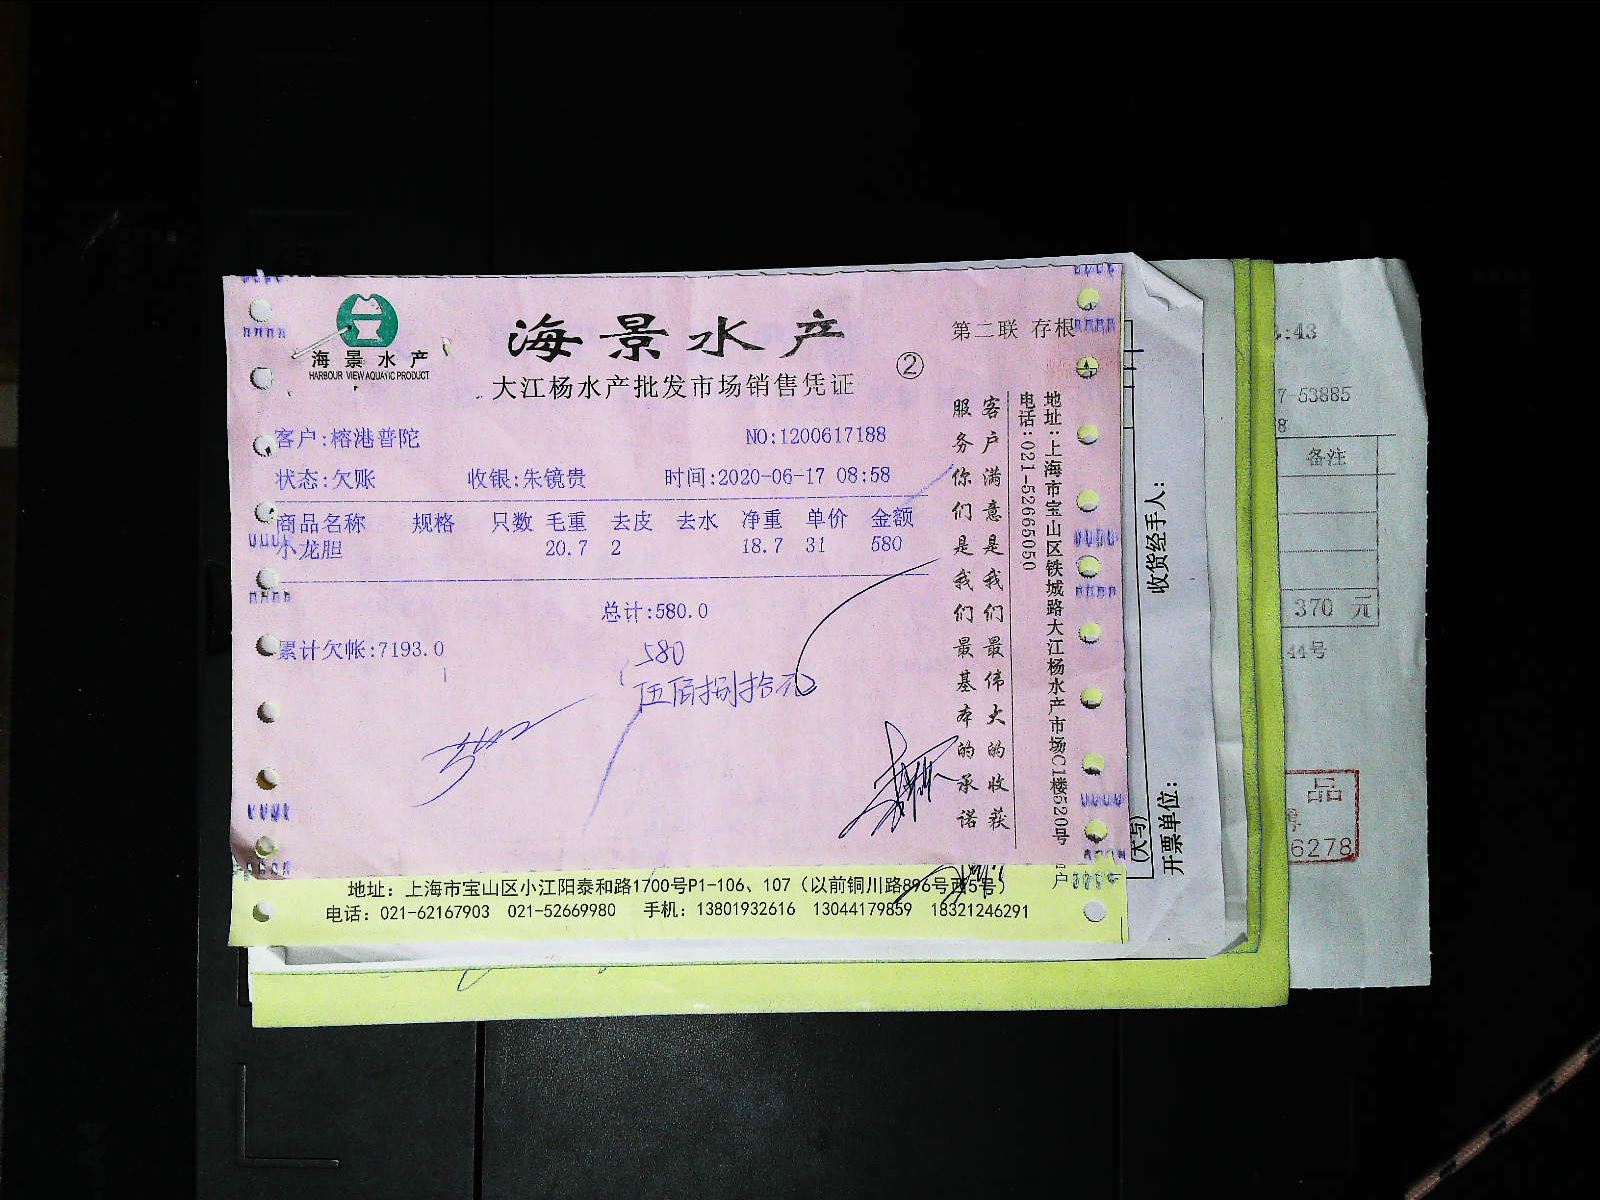 海景水产
HARBOUR VIEW AQUATIC PRODUCT
海景水产
大江杨水产批发市场销售凭证
②
第二联 存根
客户:榕港普陀
NO:1200617188
状态:欠账 收银:朱镜贵 时间:2020-06-17 08:58
商品名称 规格 只数 毛重 去皮 去水 净重 单价 金额
小龙胆 20.7 2 18.7 31 580
总计:580.0
累计欠帐:7193.0
580
伍佰捌拾元
客户满意是我们最伟大的收获
服务你们是我们最基本的承诺
地址:上海市宝山区铁城路大江杨水产市场C1楼520号
电话:021-52665050
地址：上海市宝山区小江阳泰和路1700号P1-106、107（以前铜川路896号西5号）
电话：021-62167903 021-52669980 手机：13801932616 13044179859 18321246291
户
收货经手人：
开票单位：
(大写)
:43
7-53885
8
备注
370 元
44号
品
6278